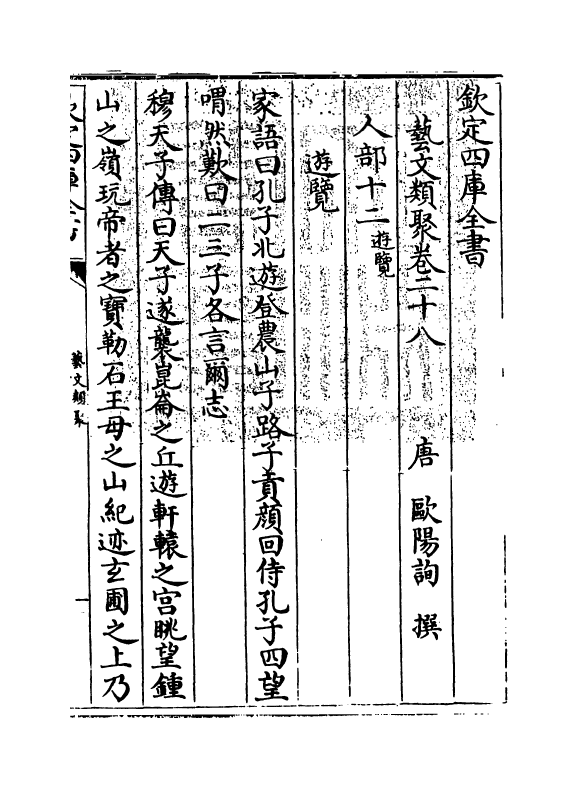 欽定四庫全書
藝文類聚卷二十八 唐 歐陽詢 撰
人部十二遊覽
遊覽
家語曰孔子北遊登農山子路子貢顔回侍孔子四望
喟然歎曰二三子各言爾志
穆天子傳曰天子遂襲崑崙之丘遊軒轅之宫眺望鍾
山之嶺玩帝者之寶勒石王母之山紀迹玄圃之上乃
藝文類聚
一